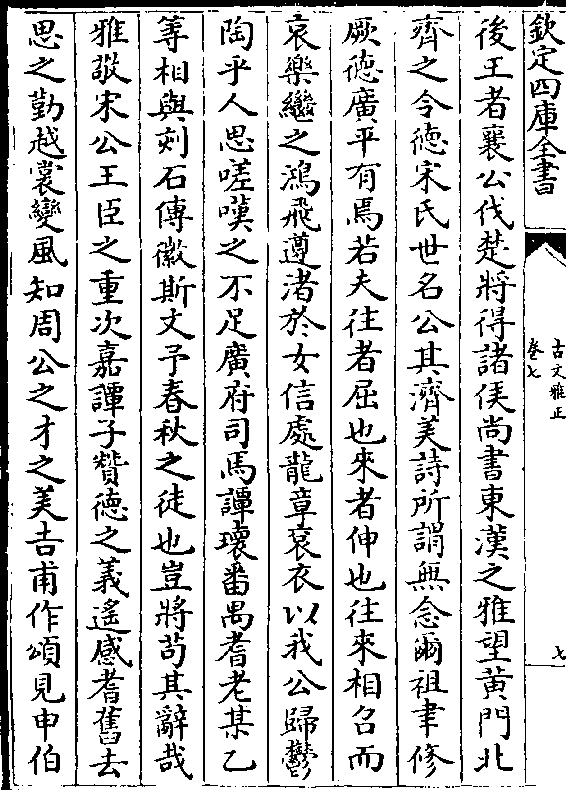 欽定四庫全書
古文雅正
卷七
七
後王者襄公伐楚將得諸侯尚書東漢之雅望黄門北
齊之令德宋氏世名公其濟美詩所謂無念爾祖聿修
厥德廣平有焉若夫往者屈也來者伸也往來相召而
哀樂繼之鴻飛遵渚於女信處龍章衮衣以我公歸鬱
陶乎人思嗟嘆之不足廣府司馬譚瓌番禺耆老某乙
等相與刻石傳徽斯文予春秋之徒也豈將苟其辭哉
雅敬宋公王臣之重次嘉譚子贊德之義遙感耆舊去
思之勤越裳變風知周公之才之美吉甫作頌見申伯